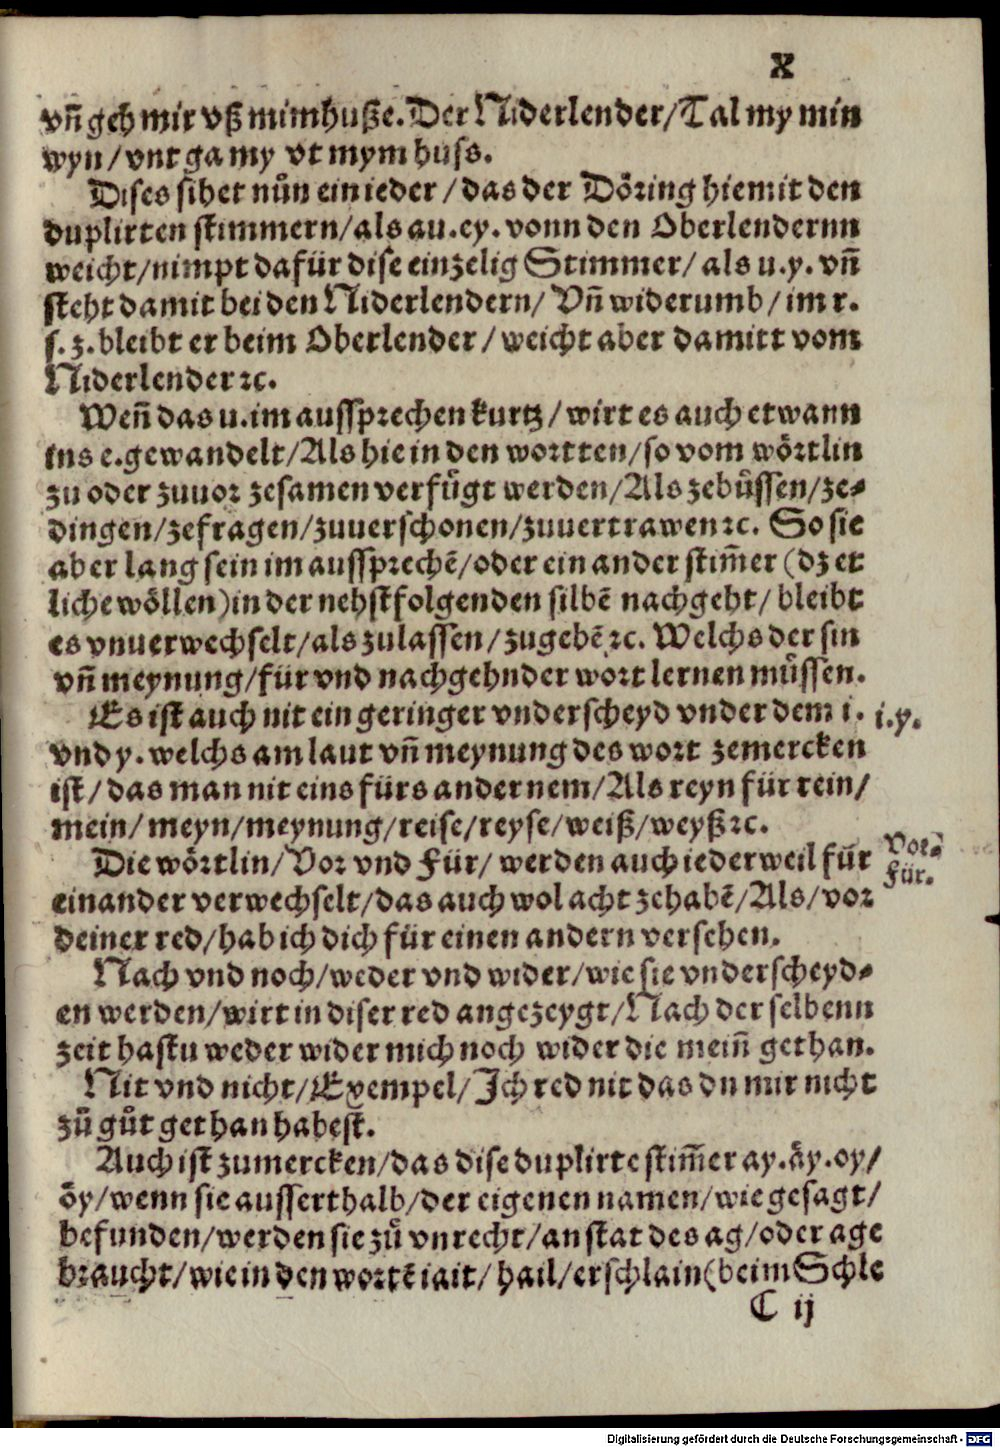 X
vñ geh mir vß mim huße. Der Niderlender/Tal my min
wyn/vnt ga my vt mym huss.
Dises sihet nůn ein ieder/das der Döring hiemit den
duplirten stimmern/als au.ey.vonn den Oberlendernn
weicht/nimpt dafür dise einzelig Stimmer/als u.y.vñ
steht damit bei den Niderlendern/Vñ widerumb/im r.
s.z.bleibt er beim Oberlender/weicht aber damitt vom
Niderlender ꝛc.
Weñ das u.im aussprechen kurtz/wirt es auch etwann
ins e.gewandelt/Als hie in den wortten/so vom wörtlin
zu oder zuuor zesamen verfůgt werden/Als zebůssen/ze-
dingen/zefragen/zuuerschonen/zuuertrawen ꝛc. So sie
aber lang sein im aussprechē/oder ein ander stim̄er (dz et
liche wöllen) in der nehstfolgenden silbē nachgeht/bleibt
es vnuerwechselt/als zulassen/zugebē ꝛc. Welchs der sin
vñ meynung/für vnd nachgehnder wort lernen můssen.
Es ist auch nit ein geringer vnderscheyd vnder dem i.
i.y.
vnd y.welchs am laut vñ meynung des wort zemercken
ist/das man nit eins fürs ander nem/Als reyn für rein/
mein/meyn/meynung/reise/reyse/weiß/weyß ꝛc.
Die wörtlin/Vor vnd Für/werden auch iederweil für
Vor-
Für.
einander verwechselt/das auch wol acht zehabē/Als/vor
deiner red/hab ich dich für einen andern versehen.
Nach vnd noch/weder vnd wider/wie sie vnderscheyd-
en werden/wirt in diser red angezeygt/Nach der selbenn
zeit hastu weder wider mich noch wider die meiñ gethan.
Nit vnd nicht/Exempel/Ich red nit das du mir nicht
zů gůt gethan habest.
Auch ist zumercken/das dise duplirte stim̄er ay.äy.oy/
öy/wenn sie ausserthalb/der eigenen namen/wie gesagt/
befunden/werden sie zů vnrecht/an stat des ag/oder age
braucht/wie in den wortē iait/hail/erschlain(beim Schle
C ij
Digitalisierung gefördert durch die Deutsche Forschungsgemeinschaft - DFG